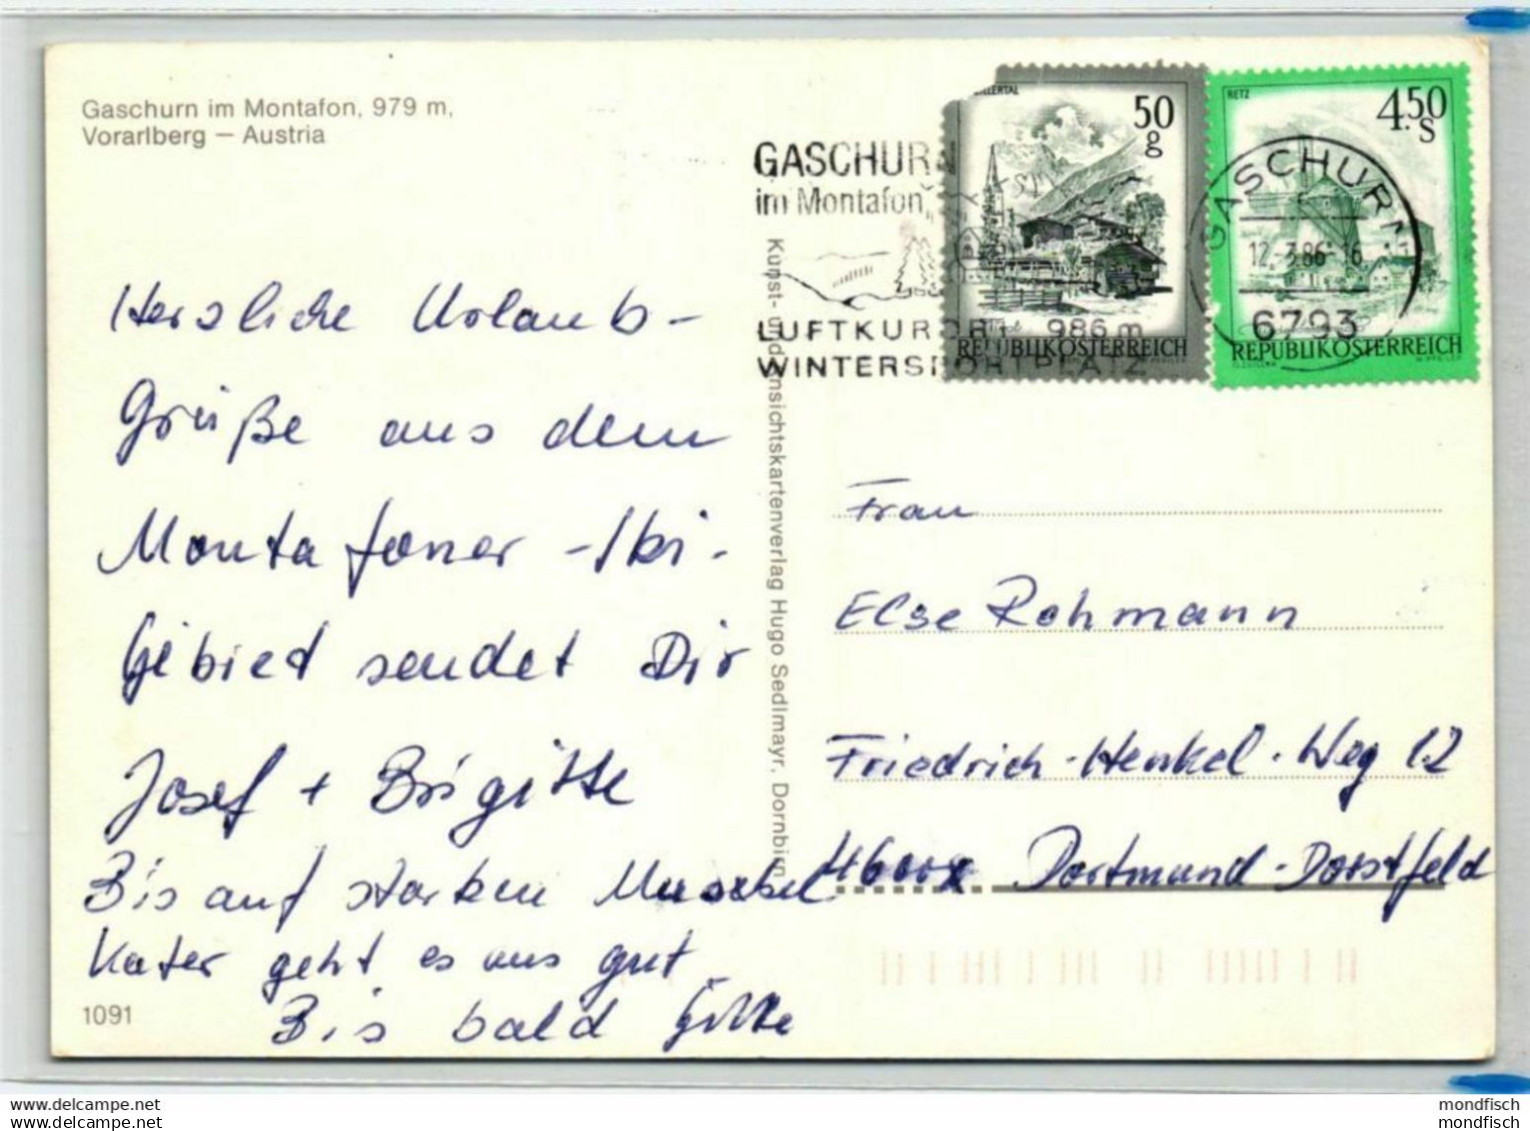 Gaschurn im Montafon, 979 m,
Vorarlberg — Austria
Herzliche Urlaub-
Grüße aus dem
Montafoner - Ski-
Gebiet sendet Dir
Josef + Brigitte
Bis auf starken Muskel
Kater geht es uns gut
Bis bald Gitte
1091
Kunst- und Ansichtskartenverlag Hugo Sedlmayr, Dornbirn
GASCHURN
im Montafon,
LUFTKURORT 986 m
WINTERSPORTPLATZ
50
g
REPUBLIK ÖSTERREICH
RETZ
4.50
S
REPUBLIK ÖSTERREICH
GASCHURN
12.-3.86-16
6793
Frau
Else Rohmann
Friedrich-Henkel-Weg 12
4600 Dortmund-Dorstfeld
mondfisch
mondfisch
www.delcampe.net
www.delcampe.net